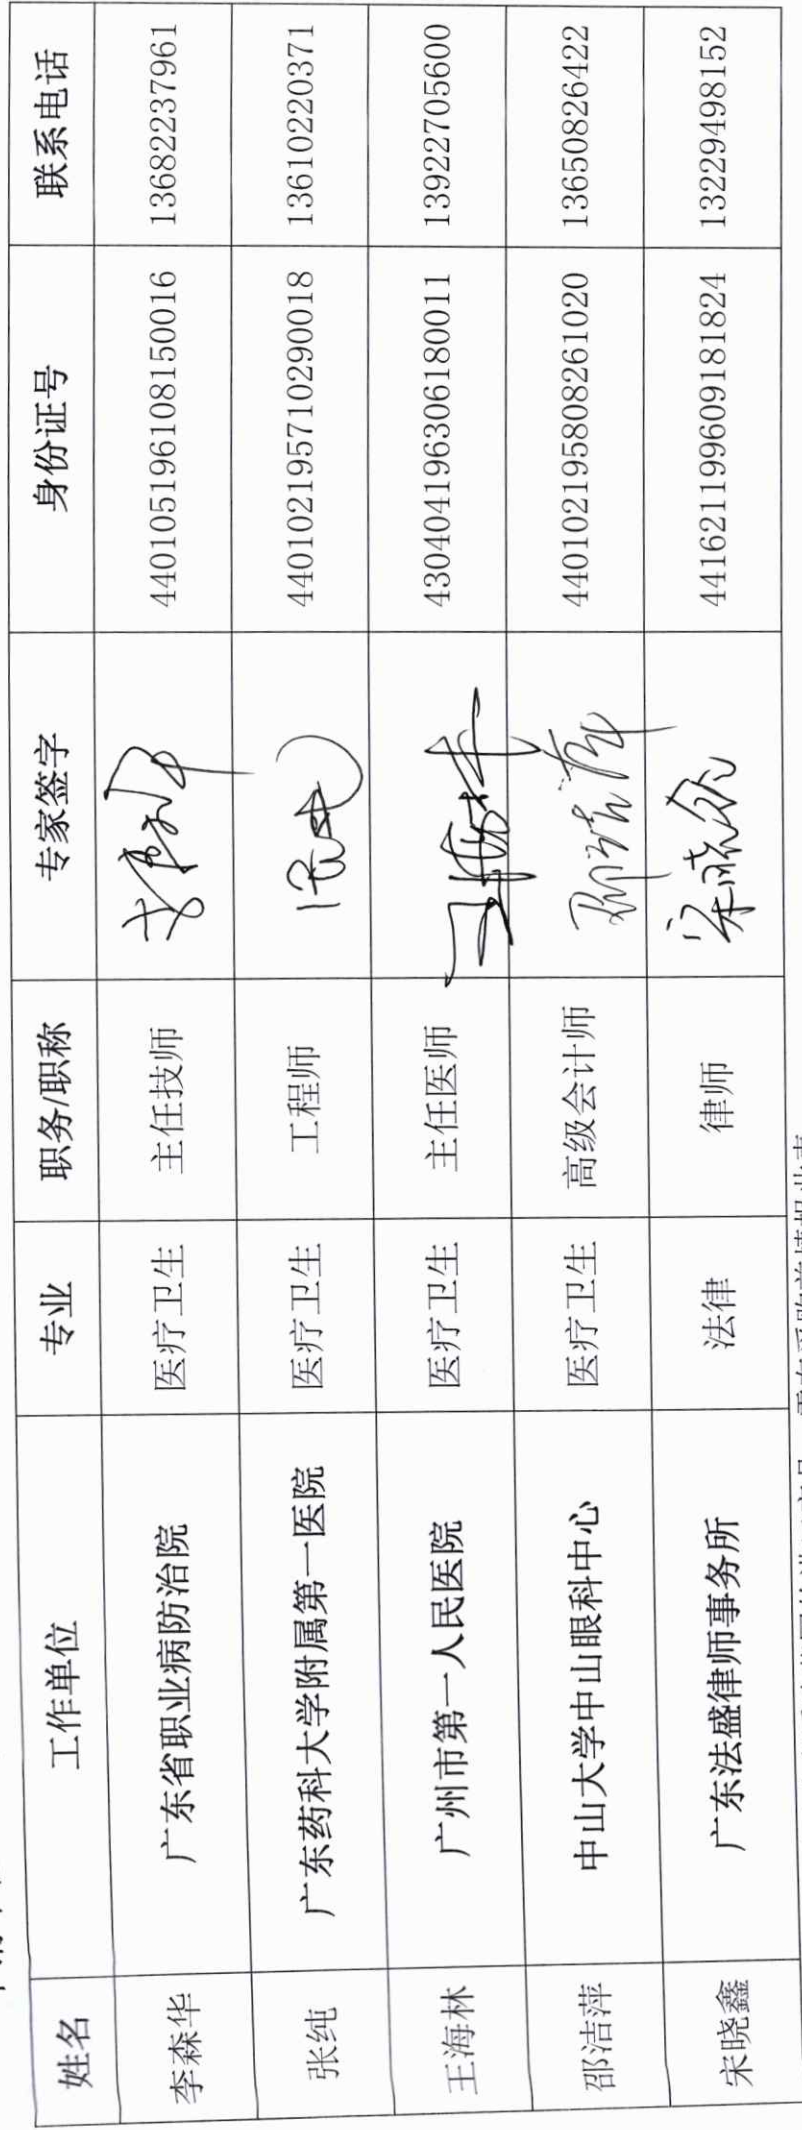 姓名 工作单位 专业 职务/职称 专家签字 身份证号 联系电话
李森华 广东省职业病防治院 医疗卫生 主任技师 440105196108150016 13682237961
张纯 广东药科大学附属第一医院 医疗卫生 工程师 440102195710290018 13610220371
王海林 广州市第一人民医院 医疗卫生 主任医师 430404196306180011 13922705600
邵洁萍 中山大学中山眼科中心 医疗卫生 高级会计师 邵洁萍 440102195808261020 13650826422
宋晓鑫 广东法盛律师事务所 法律 律师 宋晓鑫 441621199609181824 13229498152